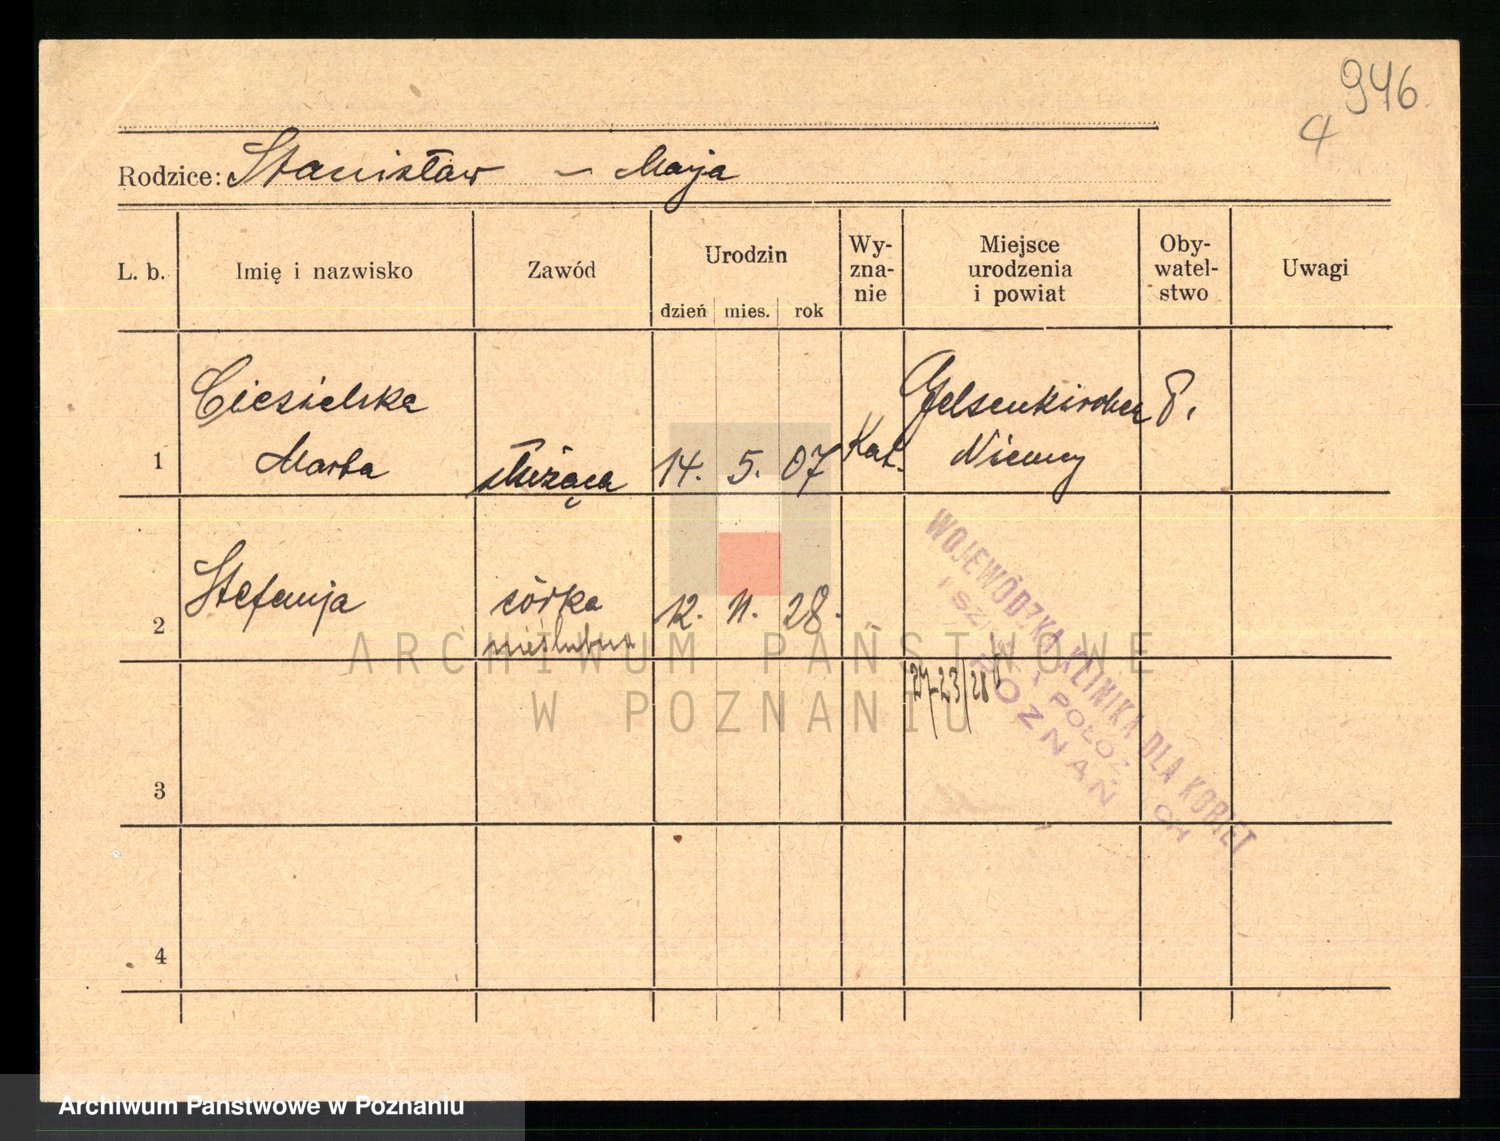 946
4
Rodzice: Stanisław – Marja
L. b.
Imię i nazwisko
Zawód
Urodzin
dzień mies. rok
Wy-
zna-
nie
Miejsce
urodzenia
i powiat
Oby-
watel-
stwo
Uwagi
1
Ciesielska
Marta
służąca
14. 5. 07
Kat.
Gelsenkirchen
Niemcy
P.
2
Stefanja
córka
nieślubna
12. 11. 28.
"
WOJEWÓDZKA KLINIKA DLA KOBIET
POZNAŃ
3
4
ARCHIWUM PAŃSTWOWE
W POZNANIU
Archiwum Państwowe w Poznaniu